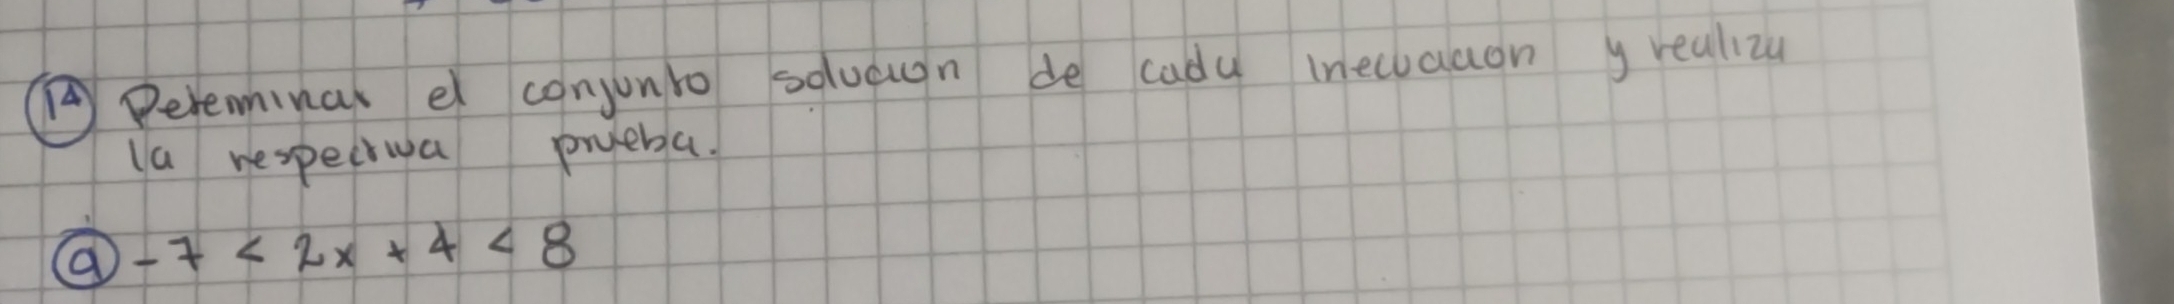 14 Determinar el conjunto solucion de cada inecuacion y realiza
la respectiva prueba.
a -7 < 2x + 4 < 8